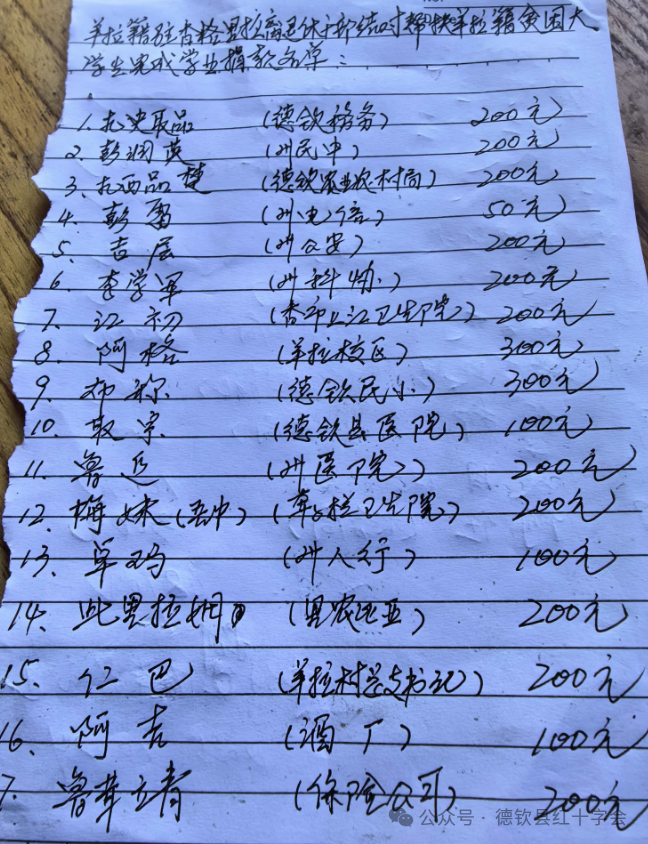 羊拉籍驻香格里拉离退休干部结对帮扶羊拉籍贫困大
学生完成学业捐款名单:
1. 扎史取品 (德钦税务) 200元
2. 彭润茂 (州民中) 200元
3. 扎西品楚 (德钦农业农村局) 200元
4. 彭 (州电信) 50元
5. 吉层 (州公安) 200元
6. 李学军 (州科协) 200元
7. 江初 (香市上江卫生院) 200元
8. 阿格 (羊拉校区) 300元
9. 布称 (德钦民小) 300元
10. 取宗 (德钦县医院) 100元
11. 鲁追 (州医院) 200元
12. 梅妹 (吾中) (奔子栏卫生院) 200元
13. 草玛 (州人行) 100元
14. 此里拉姆 (县农) 200元
15. 仁巴 (羊拉村总支书记) 200元
16. 阿吉 (酒厂) 100元
7. 鲁茸立青 (保险公司) 200元
公众号 · 德钦县红十字会